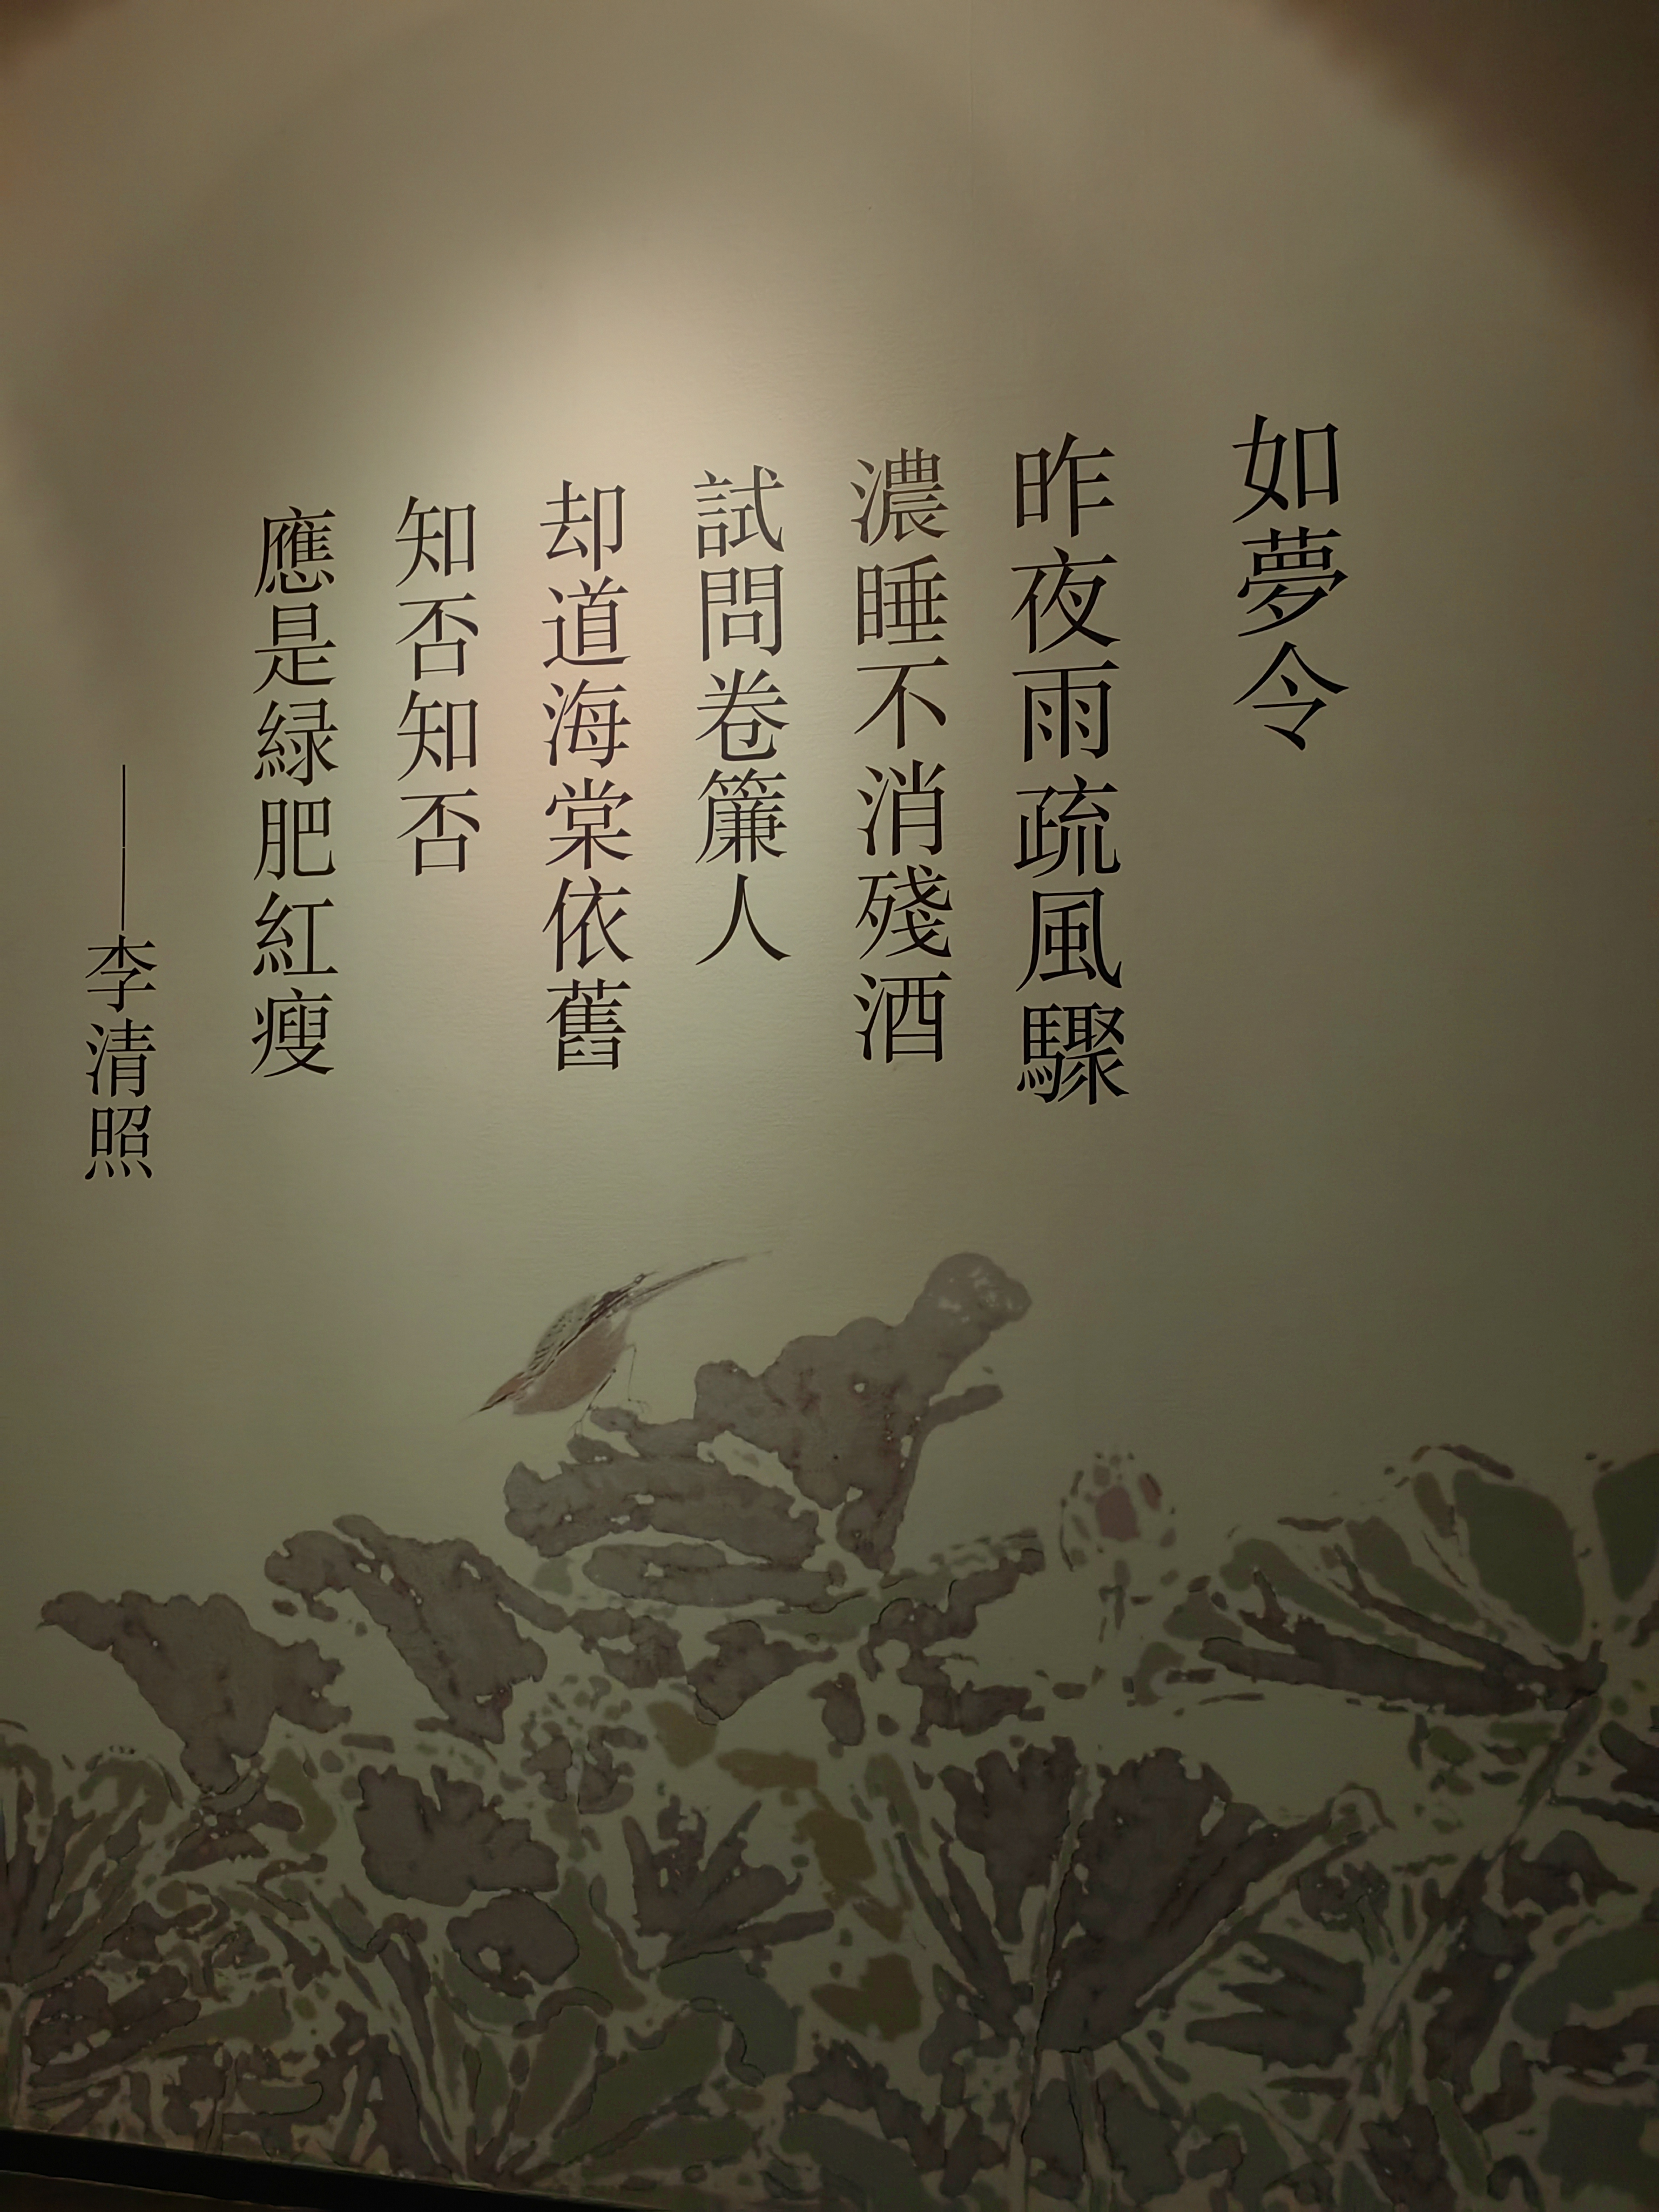 如夢令
昨夜雨疏風驟
濃睡不消殘酒
試問卷簾人
却道海棠依舊
知否知否
應是緑肥紅瘦
——李清照